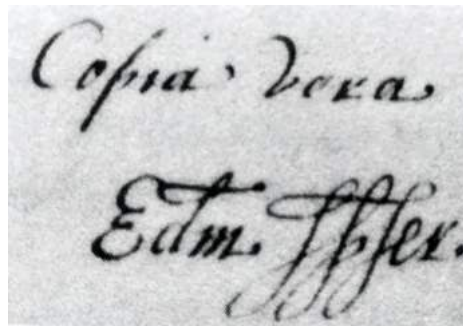 Copia vera
Edm Spser.